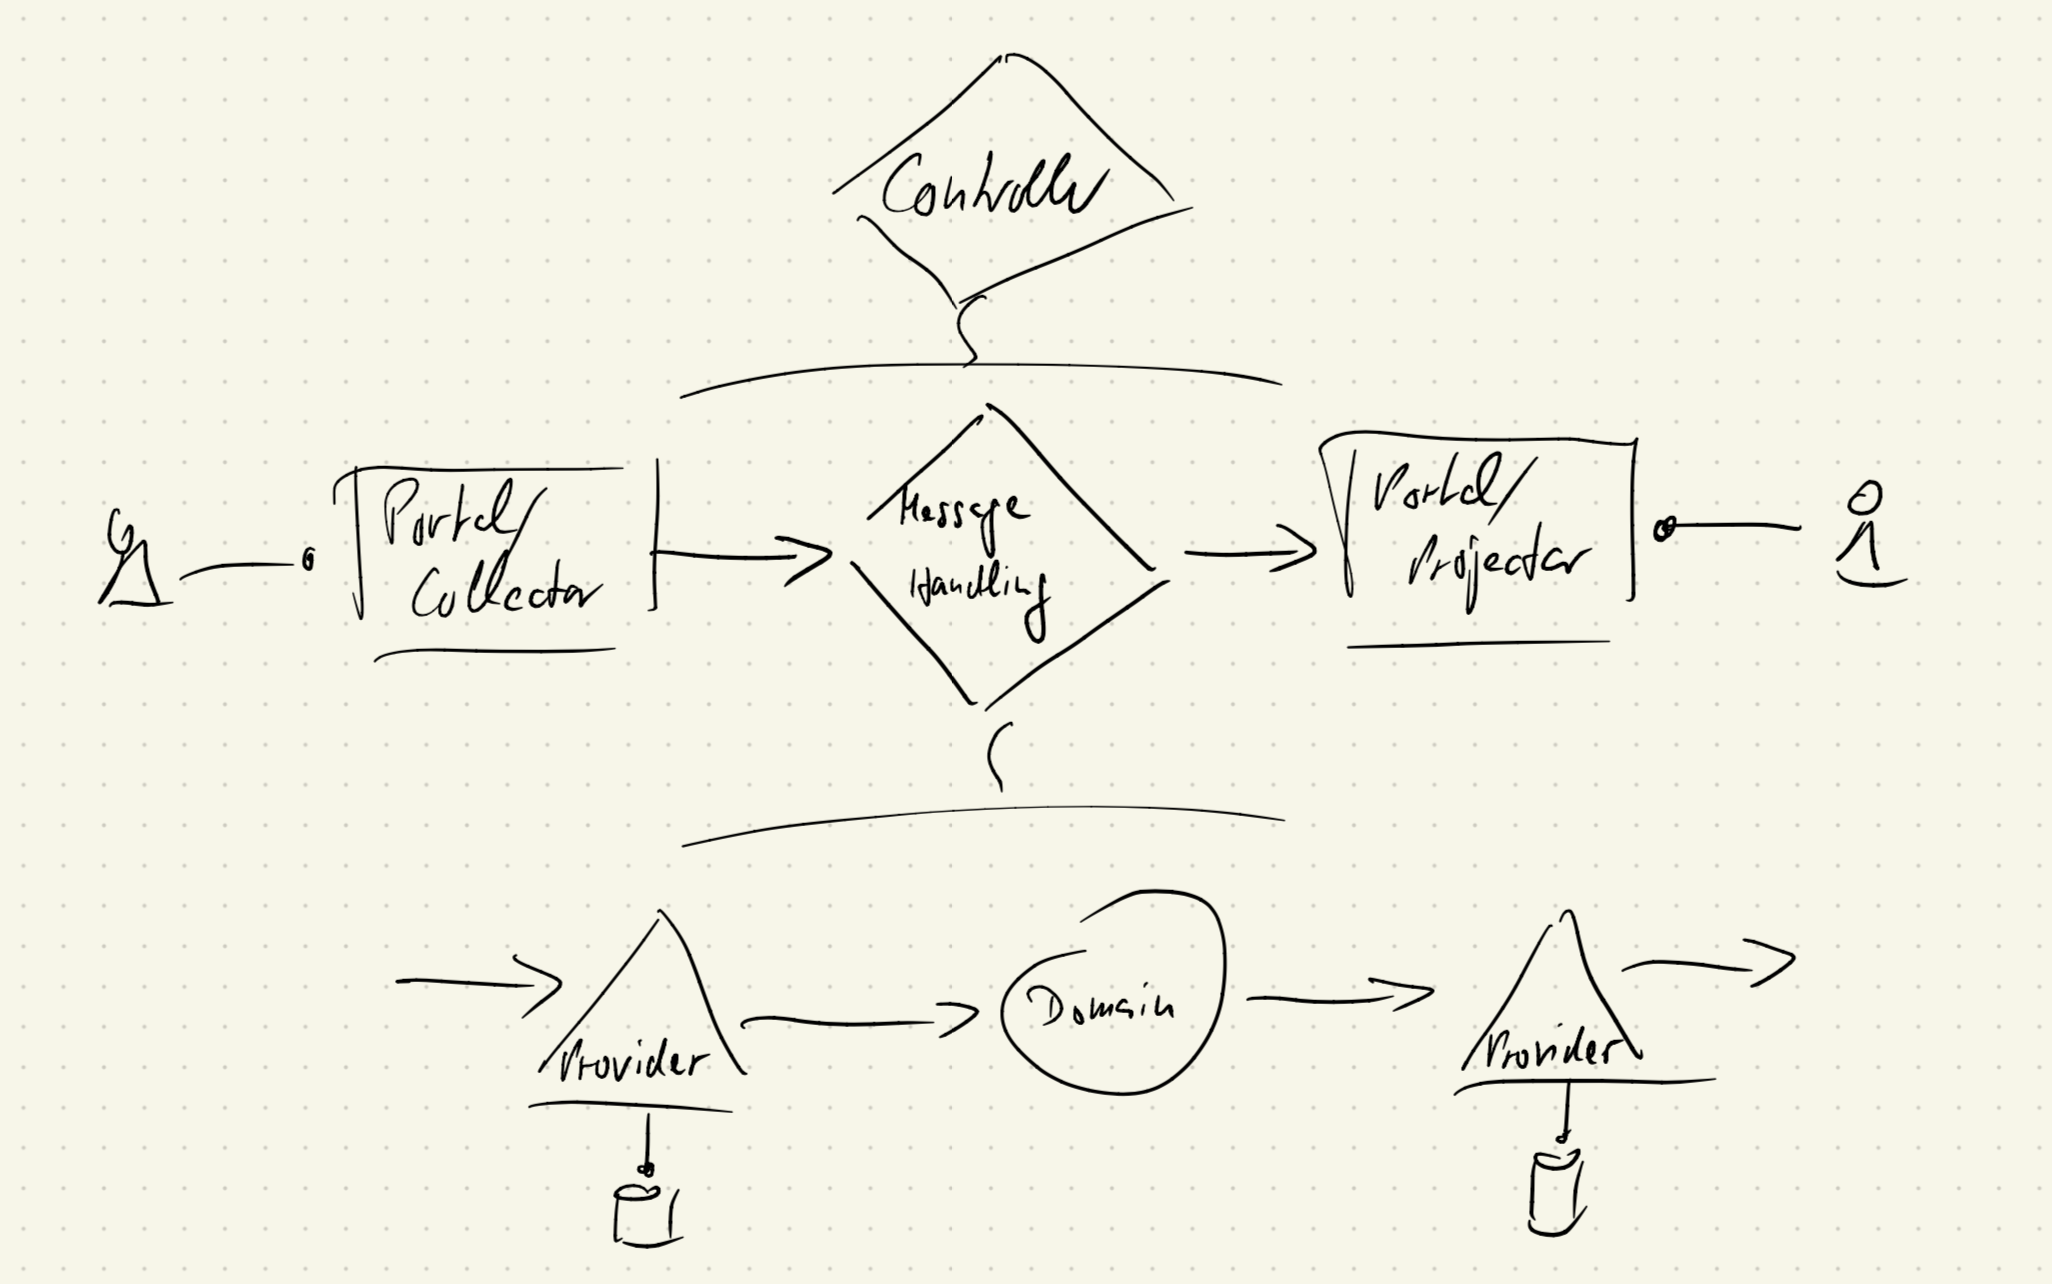 Controller
Portal/
Collector
Message
Handling
Portal/
Projector
Provider
Domain
Provider